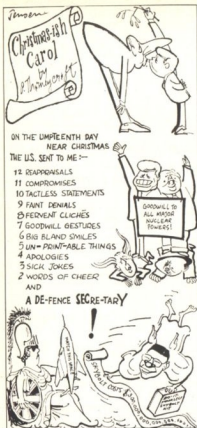 Jensen
Christmas-ish
Carol
by
P. Thorneycroft
ON THE UMPTEENTH DAY
NEAR CHRISTMAS
THE U.S. SENT TO ME :—
12 REAPPRAISALS
11 COMPROMISES
10 TACTLESS STATEMENTS
9 FAINT DENIALS
8 FERVENT CLICHÉS
7 GOODWILL GESTURES
6 BIG BLAND SMILES
5 UN-PRINT-ABLE THINGS
4 APOLOGIES
3 SICK JOKES
2 WORDS OF CHEER
AND
A DE-FENCE SECRE-TARY
!
GOODWILL TO
ALL MAJOR
NUCLEAR
POWERS!